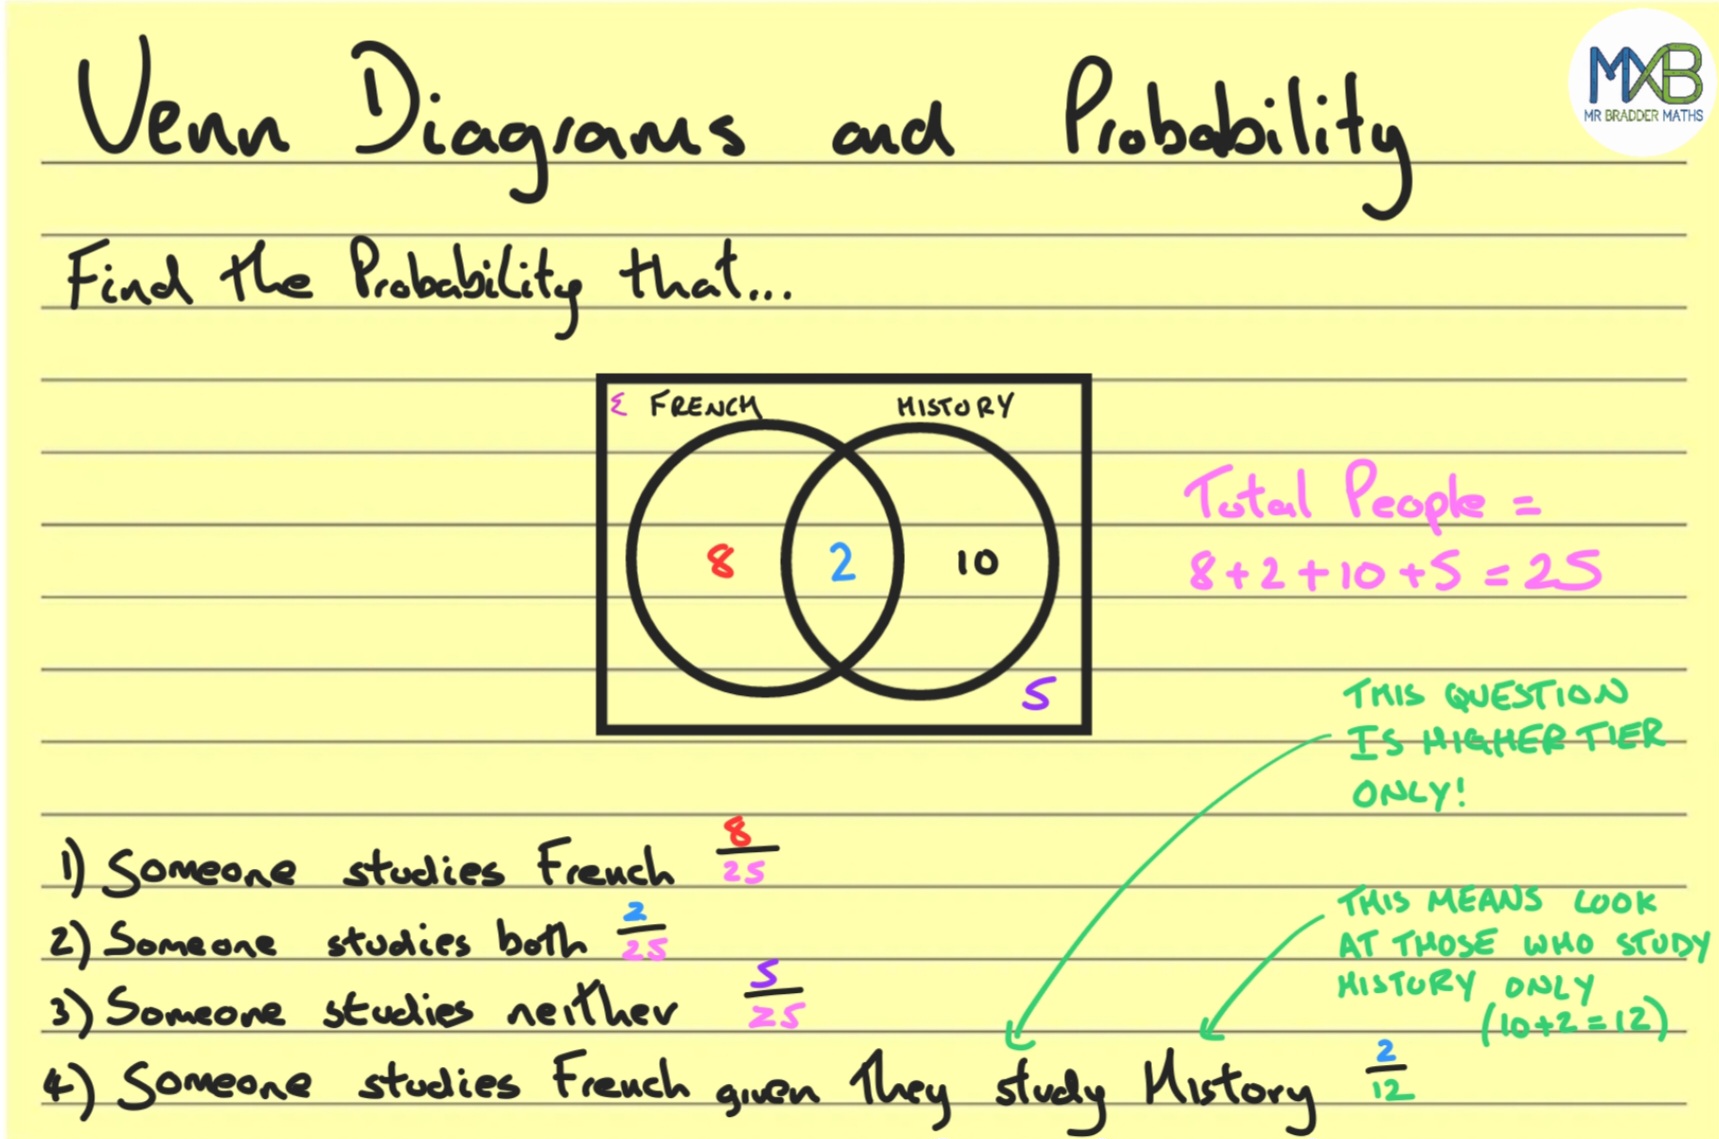 Venn Diagrams and Probability
MXB
MR BRADDER MATHS
Find the Probability that...
ξ FRENCH HISTORY
8 2 10
5
Total People =
8+2+10+5=25
THIS QUESTION
IS HIGHER TIER
ONLY!
1) Someone studies French 8/25
2) Someone studies both 2/25
3) Someone studies neither 5/25
THIS MEANS LOOK
AT THOSE WHO STUDY
HISTORY ONLY
(10+2=12)
4) Someone studies French given They study History 2/12